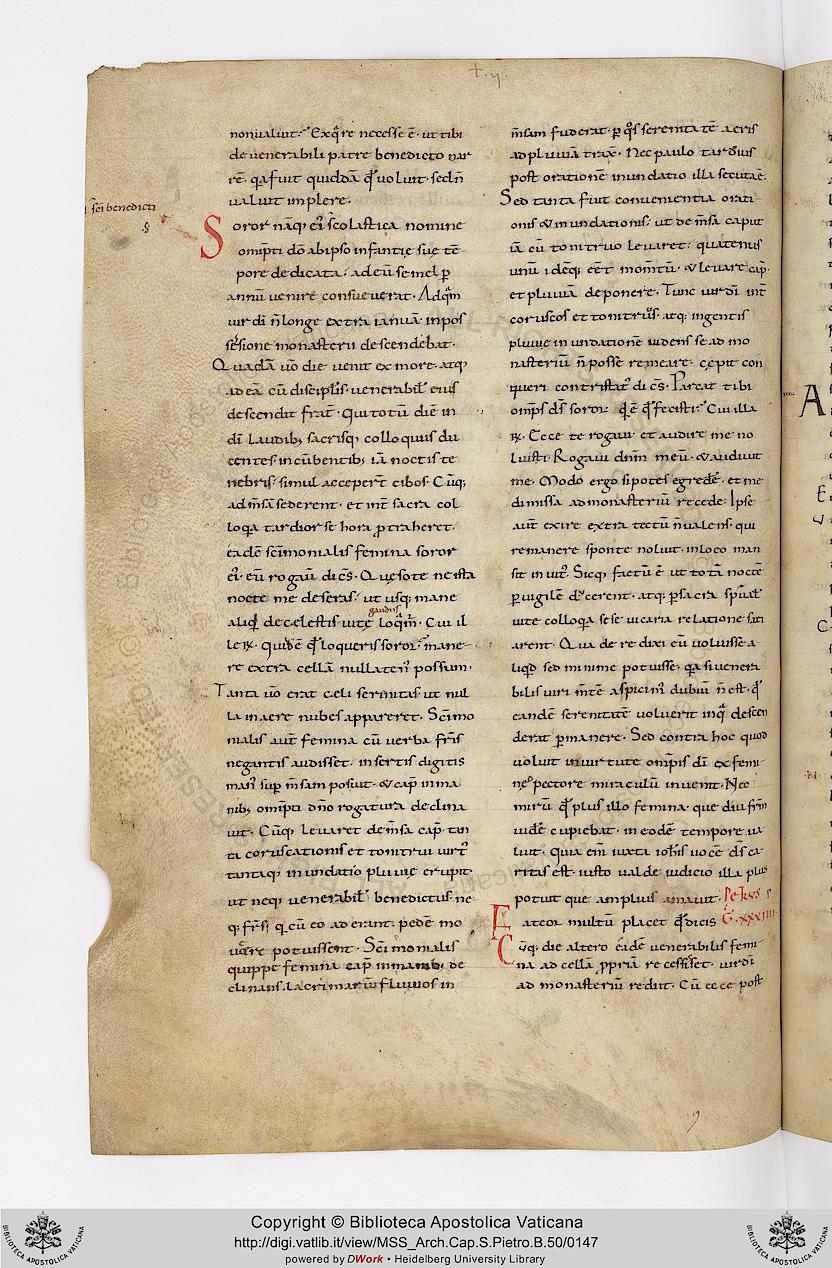 non ualuit. Exq̃re necesse ē. ut tibi
de uenerabili patre benedicto nar
rē. qa fuit quiddā qđ uoluit. sed n̄
ualuit implere.
sc̄i benedicti
§
Soror nāq; ei' scolastica nomine
omp̄ti dō ab ipso infantię suę tē
pore dedicata. ad eū semel p̱
annū uenire consueuerat. Ad quā
uir dī n̄ longe extra ianuā in pos
sessione monasterii descendebat.
Quadā ūo die uenit ex more. atq;
ad eā cū discipłis. uenerabił eius
descendit frat̄. Qui totū diē in
dī laudib; sacrisq; colloquiis du
centes. incūbentib; iā noctis te
nebris. simul acceper̄t cibos. Cūq;
ad m̄sā sederent. et int̄ sacra col
loqa tardior se hora p̱traheret.
eadē sc̄imonialis femina soror
ei'. eū rogauit dicēs. Quęso te ne ista
nocte me deseras. ut usq; mane
gaudiis
aliqd de celestis uitę loq̄m̄. Cui il
le ℞. quid ē qđ loqueris soror. mane
re extra cellā nullaten' possum.
Tanta ūo erat celi serenitas. ut nul
la in aere nubes appareret. Sc̄imo
nialis aut̄ femina cū uerba fr̄is
negantis audisset. insertis digitis
man' sup̱ m̄sam posuit. & cap̄ in ma
nib; omp̄ti dn̄o rogatura declina
uit. Cūq; leuaret de m̄sa cap̄. tan
ta coruscationis et tonitrui uirt'
tantaq; inundatio pluuię erupit.
ut neq; uenerabił benedictus. ne
q; fr̄s q cū eo aderant. pedē mo
uere potuissent. Sc̄imonialis
quippe femina cap̄ in manib; de
clinans. lacrimarū fluuios in
t. ij.
m̄sam fuderat. p̱ q̄s serenitatē aeris
ad pluuiā trax̄. Nec paulo tardius
post orationē inundatio illa secuta ē.
Sed tanta fuit conuenientia orati
onis & inundationis. ut de m̄sa caput
iā cū tonitruo leuaret. quatenus
unū idēq; eēt momtū. & leuare cap̄.
et pluuiā deponere. Tunc uir dī int̄
coruscos et tonitruus atq; ingentis
pluuię inundationē uidens se ad mo
nasteriū n̄ posse remeare. cepit con
queri contristat' dicēs. Parcat tibi
omp̄s d̄s soror. q̄ ē qđ fecisti. Cui illa
℞. Ecce te rogaui. et audire me no
luisti. Rogaui dn̄m meū. & audiuit
me. Modo ergo si potes egredere. et me
dimissa ad monasteriū recede. Ipse
aut̄ exire extra tectū n̄ ualens. qui
remanere sponte noluit. in loco man
sit inuit'. Sicq; factū ē ut totā noctē
p̱uigilē ducerent. atq; p̱ sacra spūał
uitę colloqa sese uicaria relatione sati
arent. Qua de re dixi eū uoluisse a
liqd sed minime potuisse. qa si uenera
bilis uiri m̄tē aspicim'. dubiū n̄ est. qđ
eandē serenitatē uoluerit in q̄ descen
derat p̱manere. Sed contra hoc quod
uoluit. in uirtute omp̄tis dī ex femi
nę pectore miraculū inuenit. Nec
mirū qđ plus illo femina. que diu fr̄m
uidē cupiebat. in eodē tempore ua
luit. Quia em̄ iuxta ioh̄is uocē d̄s ca
ritas est. iusto ualde iudicio illa plus
potuit que amplius amauit. Petrus
Fateor multū placet qđ dicis G. xxxiiii.
Cūq; die altero eadē uenerabilis femi
na ad cellā p̱priā recessisset. uir dī
ad monasteriū rediit. Cū ecce post
A
Copyright © Biblioteca Apostolica Vaticana
http://digi.vatlib.it/view/MSS_Arch.Cap.S.Pietro.B.50/0147
powered by DWork • Heidelberg University Library